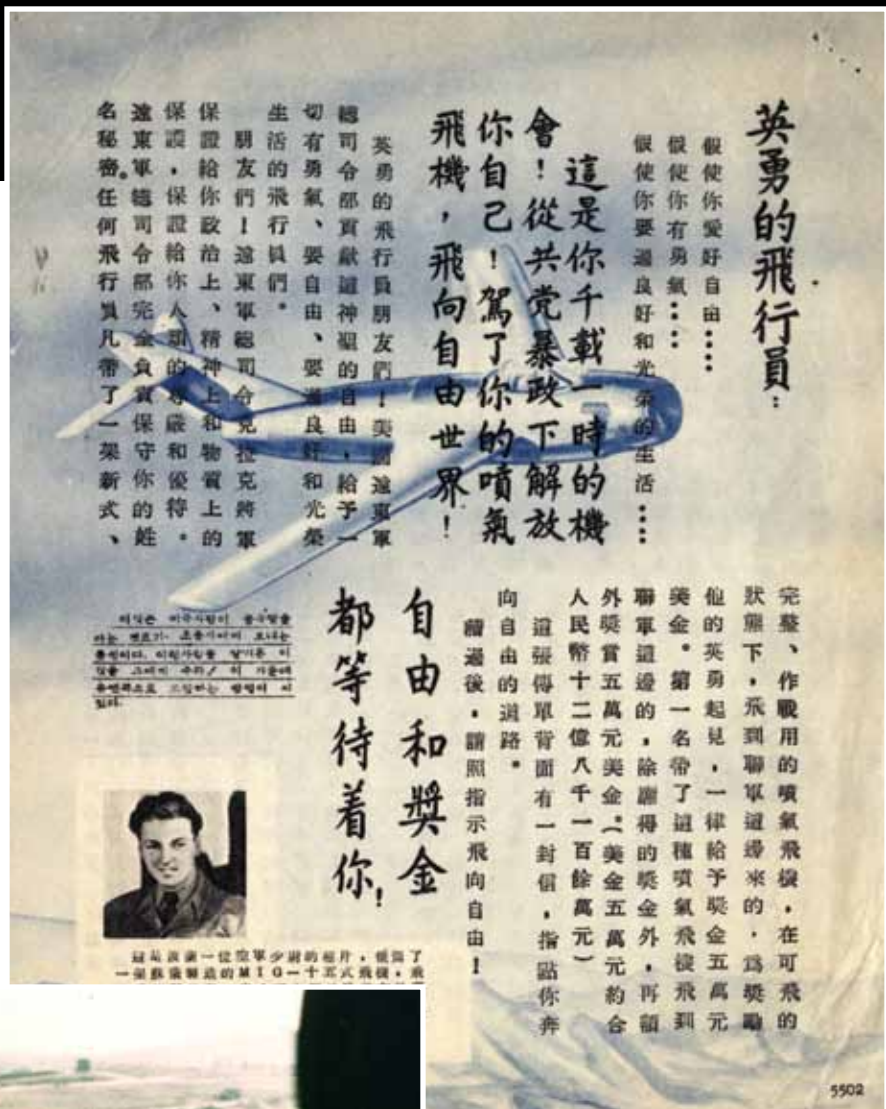 英勇的飛行員：
假使你愛好自由••••
假使你有勇氣••••
假使你要過良好和光榮的生活••••
這是你千載一時的機
會！從共党暴政下解放
你自己！駕了你的噴氣
飛機，飛向自由世界！
英勇的飛行員朋友們！美國遠東軍
總司令部貢獻這神聖的自由，給予一
切有勇氣、要自由、要過良好和光榮
生活的飛行員們。
朋友們！遠東軍總司令克拉克將軍
保證給你政治上、精神上和物質上的
保護，保證給你人類的尊嚴和優待。
遠東軍總司令部完全負責保守你的姓
名秘密。任何飛行員凡帶了一架新式、
完整、作戰用的噴氣飛機，在可飛的
狀態下，飛到聯軍這邊來的，爲獎勵
他的英勇起見，一律給予獎金五萬元
美金。第一名帶了這種噴氣飛機飛到
聯軍這邊的，除應得的獎金外，再額
外獎賞五萬元美金。（美金五萬元約合
人民幣十二億八千一百餘萬元）
這張傳單背面有一封信，指點你奔
向自由的道路。
讀過後，請照指示飛向自由！
自由和獎金
都等待着你！
이것은 미국사람이 중국말을
아는 조종사에게 보내는
통신이다. 이런사람을 알거든 이
것을 그에게 주라! 이 가운데
유엔쪽으로 도망하는 방법이
있다.
這是波蘭一位空軍少尉的相片，他駕了
一架蘇俄製造的MIG一十五式飛機，飛
5502